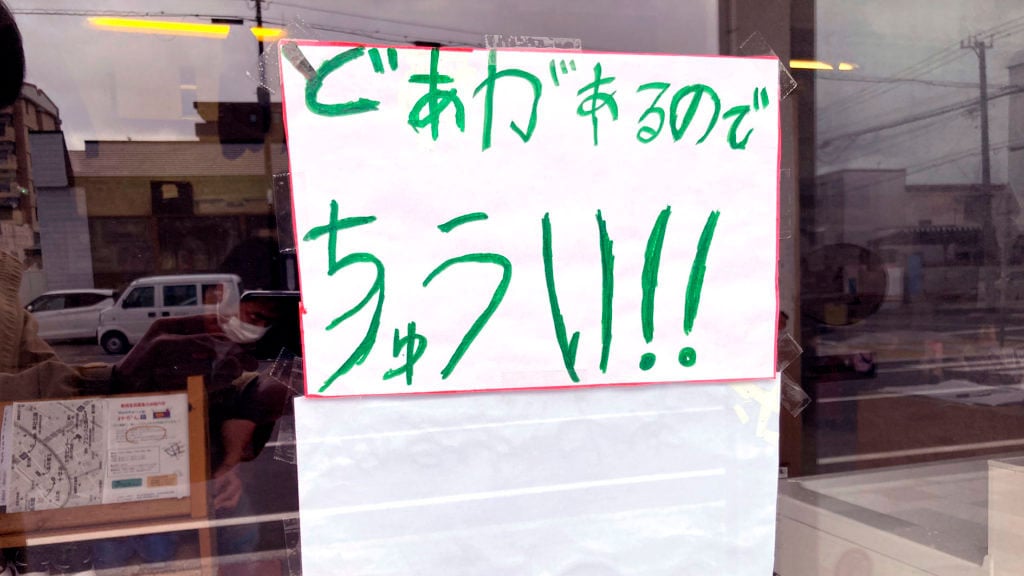 どあがあるので
ちゅうい!!